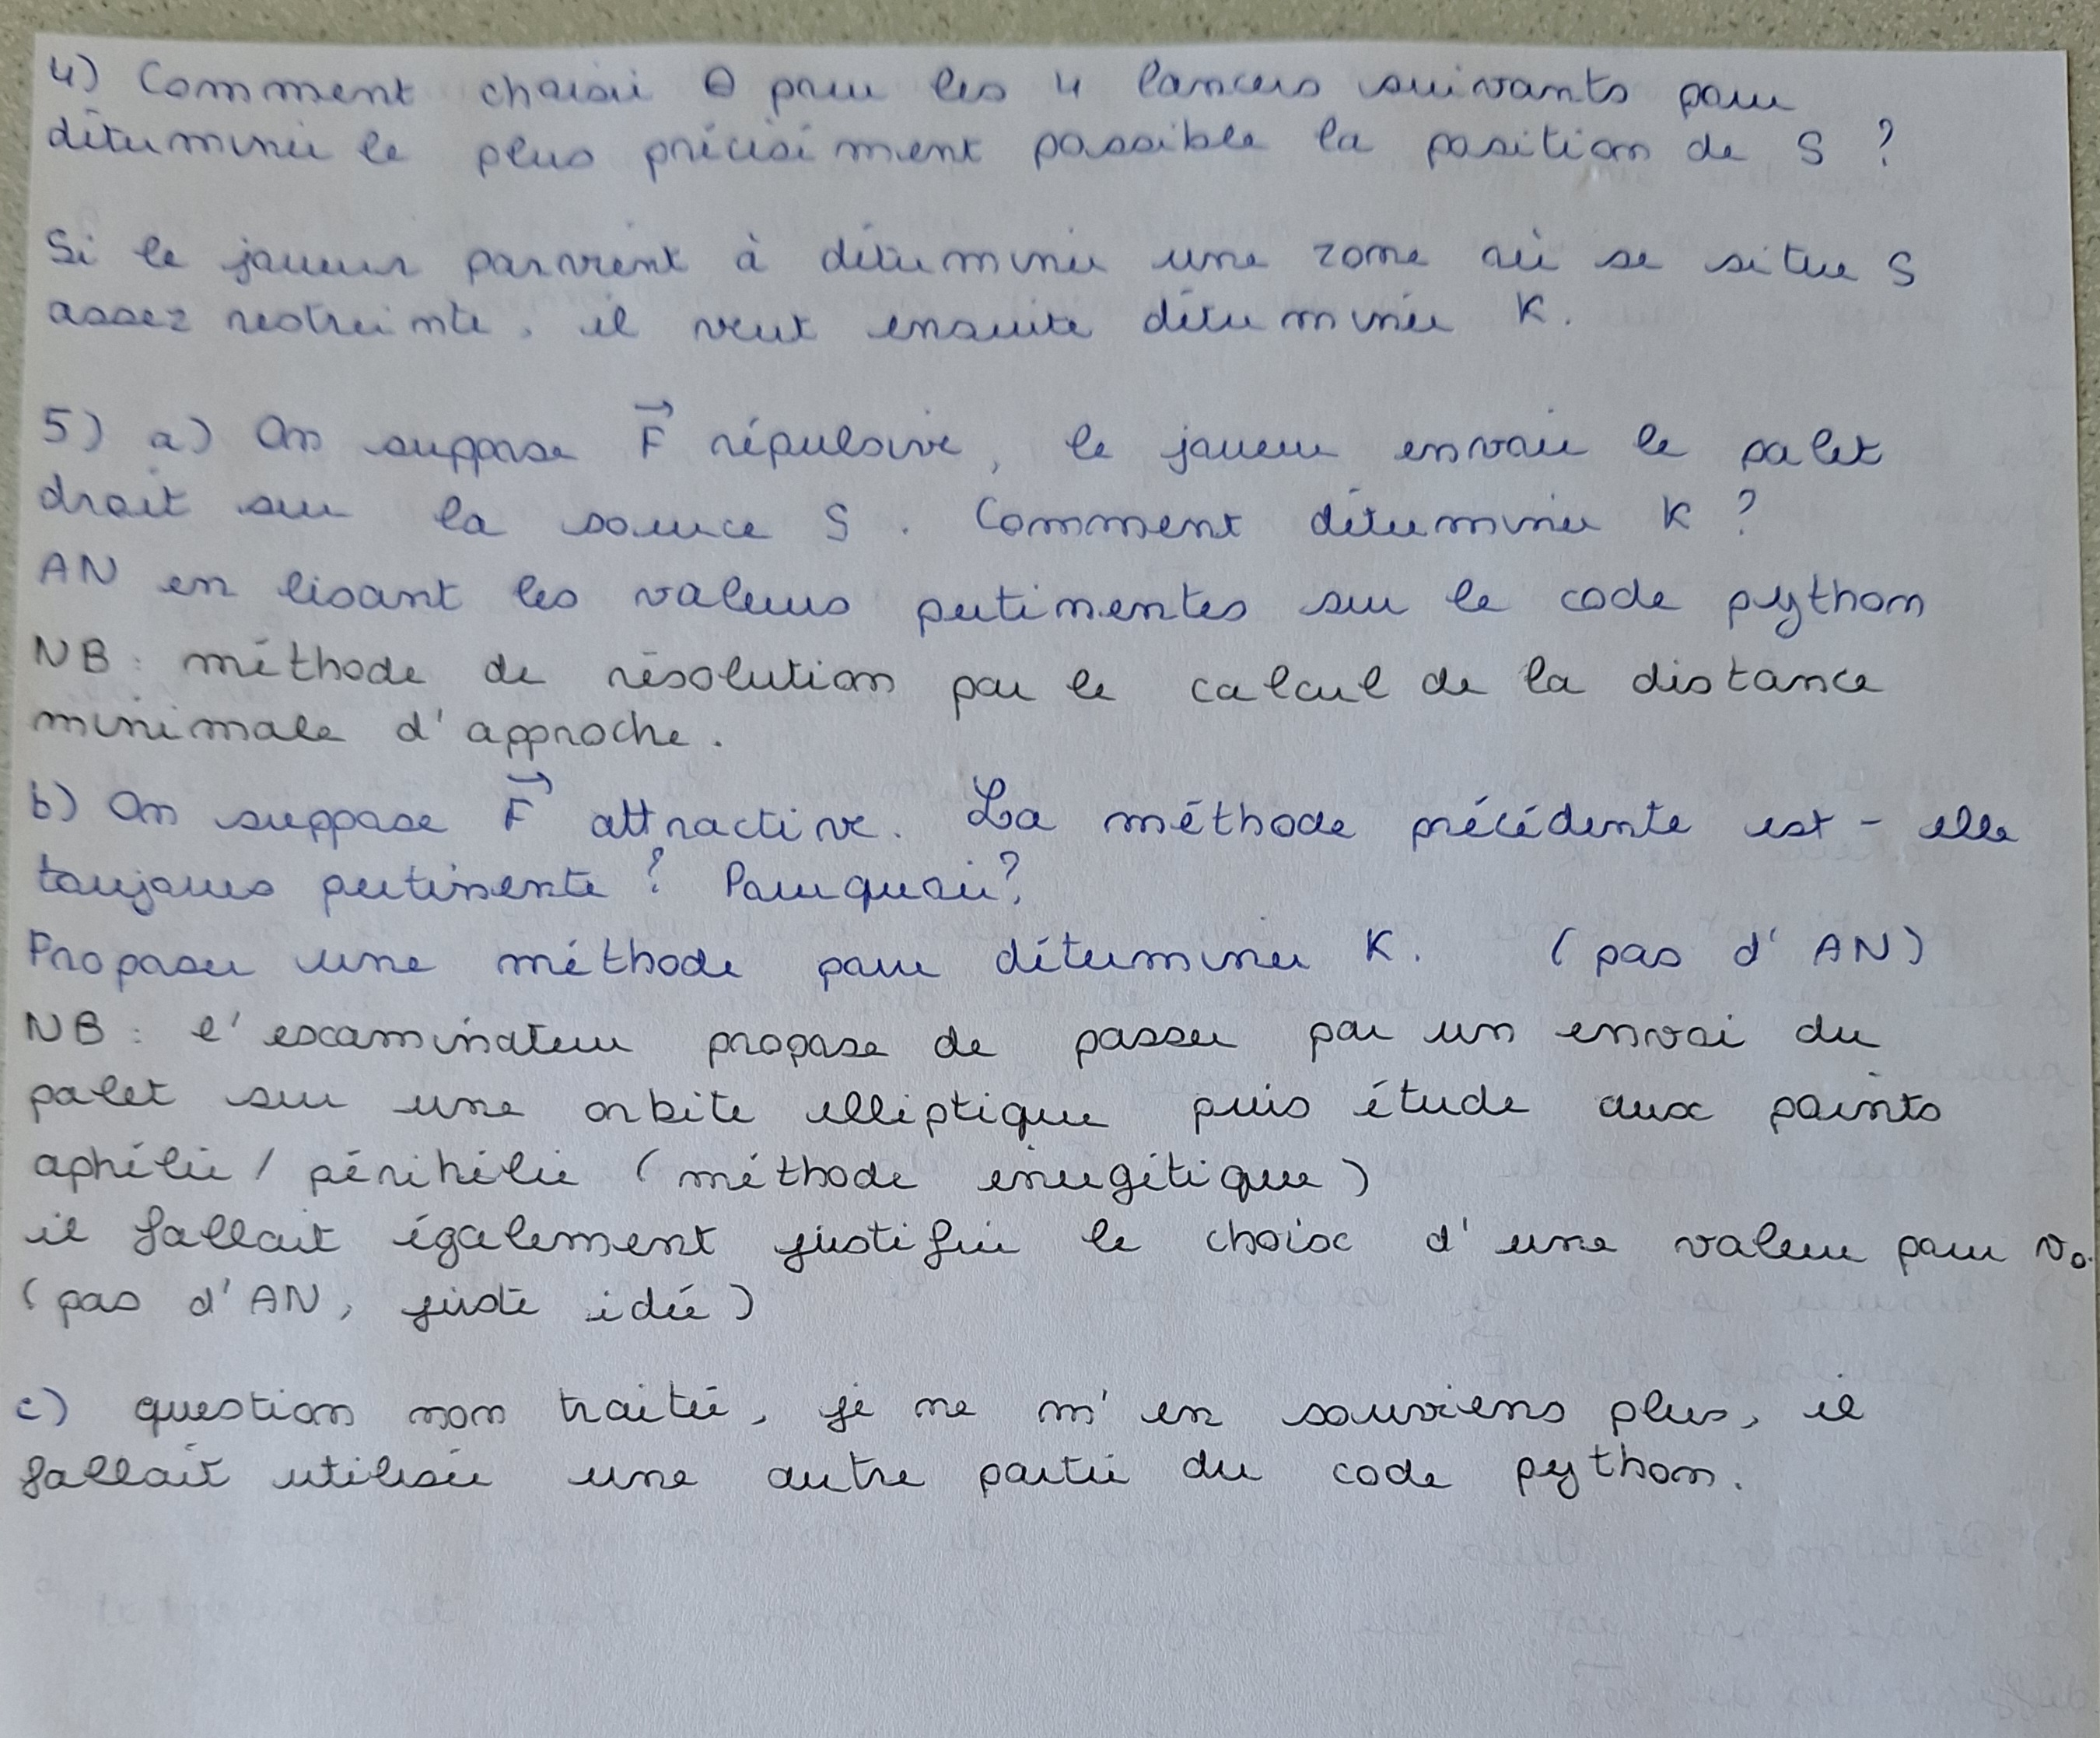 4) Comment choisir θ pour les 4 lancers suivants pour
déterminer le plus précisément possible la position de S ?
Si le joueur parvient à déterminer une zone où se situe S
assez restreinte, il veut ensuite déterminer K.
5) a) On suppose F⃗ répulsive, le joueur envoie le palet
droit sur la source S. Comment déterminer K ?
AN en lisant les valeurs pertinentes sur le code python
NB : méthode de résolution par le calcul de la distance
minimale d'approche.
b) On suppose F⃗ attractive. La méthode précédente est-elle
toujours pertinente ? Pourquoi ?
Proposer une méthode pour déterminer K. (pas d'AN)
NB : l'examinateur propose de passer par un envoi du
palet sur une orbite elliptique puis étude aux points
aphélie / périhélie (méthode énergétique)
il fallait également justifier le choix d'une valeur pour v₀.
(pas d'AN, juste idée)
c) question non traitée, je ne m'en souviens plus, il
fallait utiliser une autre partie du code python.